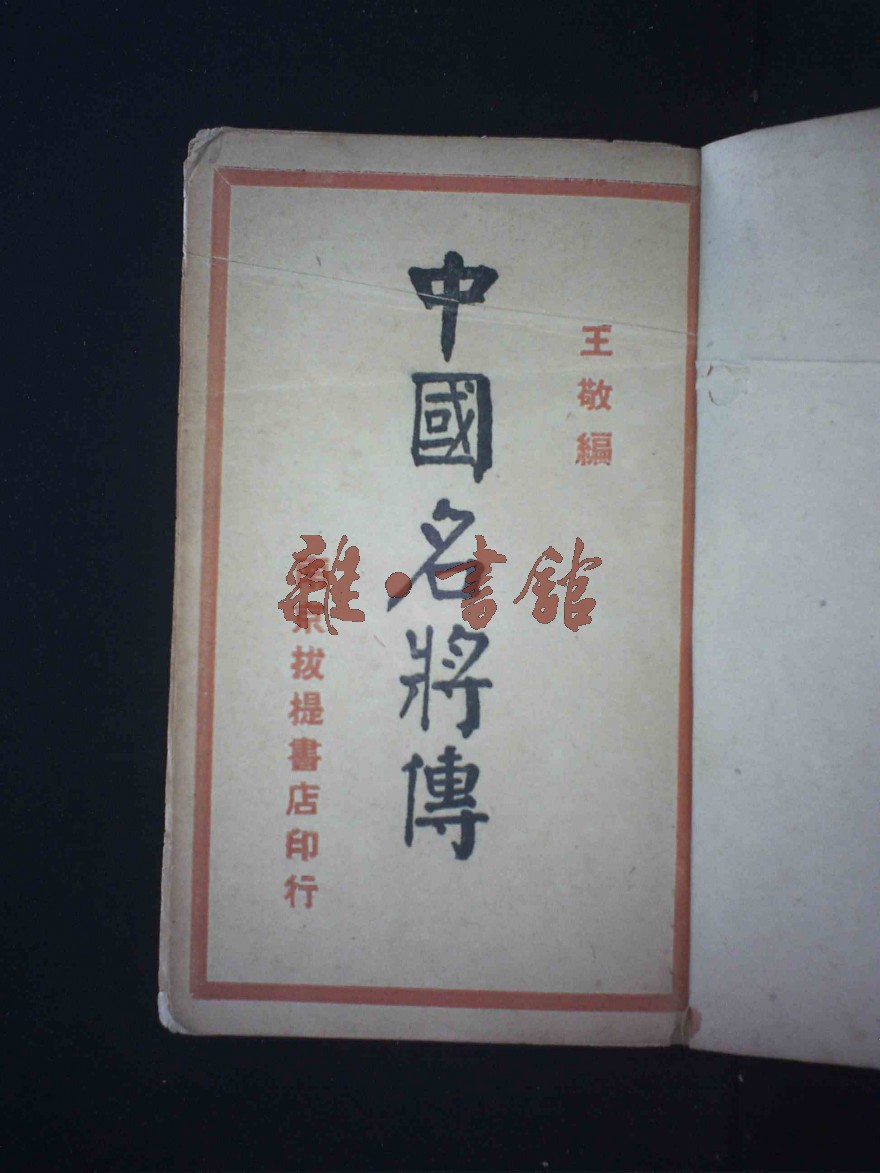 王敬編
中國名將傳
京拔提書店印行
雜·書館